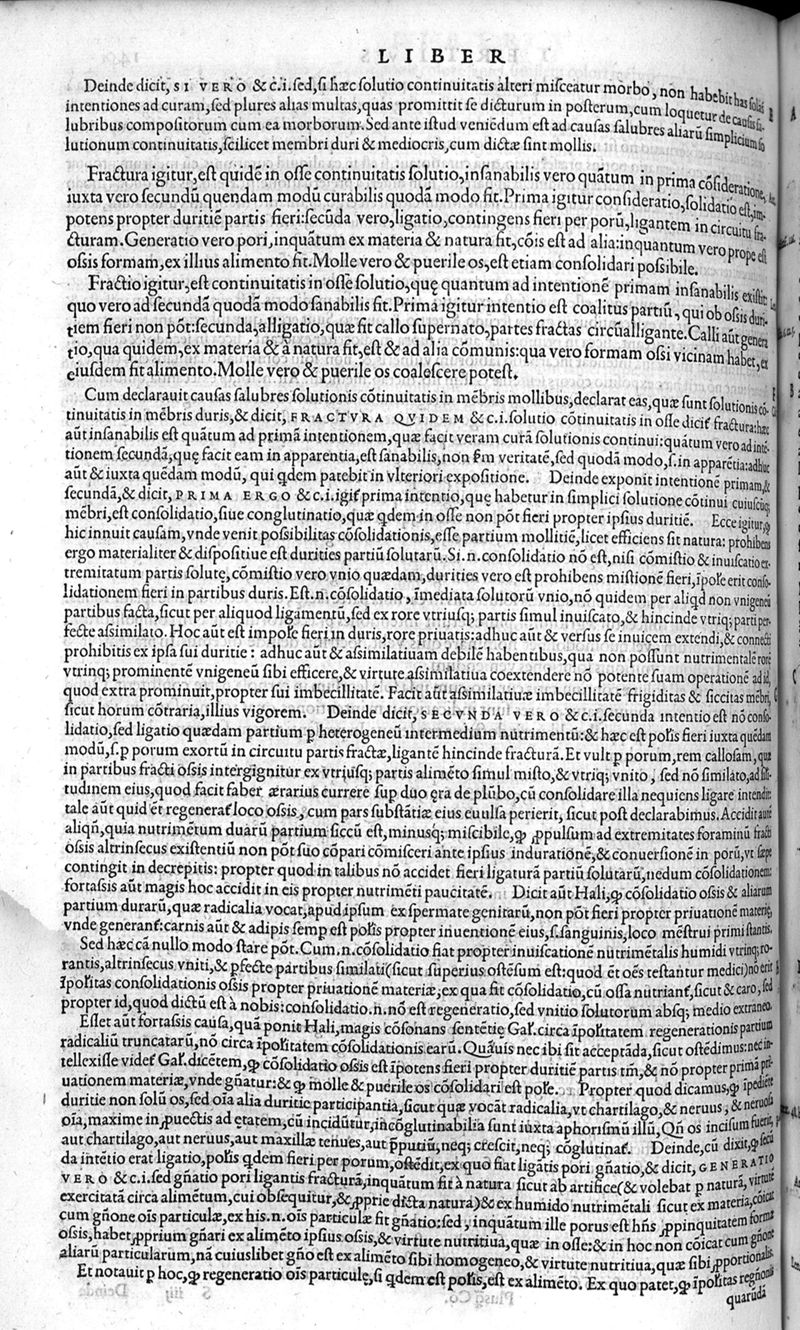 LIBER
Deinde dicit, SI VERO & c.i. sed, si hæc solutio continuitatis alteri misceatur morbo, non habebit has solas
intentiones ad curam, sed plures alias multas, quas promittit se dicturum in posterum, cum loquetur de causis sa-
lubribus compositorum cum ea morborum. Sed ante istud veniēdum est ad causas salubres aliarū simplicium so
lutionum continuitatis, scilicet membri duri & mediocris, cum dictæ sint mollis.
Fractura igitur, est quidē in osse continuitatis solutio, insanabilis vero quātum in prima cōsideratione,
iuxta vero secundū quendam modū curabilis quodā modo fit. Prima igitur consideratio, solidatio est, im-
potens propter duritiē partis fieri: secūda vero, ligatio, contingens fieri per porū, ligantem in circuitu fra-
cturam. Generatio vero pori, inquātum ex materia & natura fit, cōis est ad alia: inquantum vero prope est
ossis formam, ex illius alimento fit. Molle vero & puerile os, est etiam consolidari possibile.
Fractio igitur, est continuitatis in osse solutio, quę quantum ad intentionē primam insanabilis existit:
quo vero ad secundā quodā modo sanabilis fit. Prima igitur intentio est coalitus partiū, qui ob ossis duri-
tiem fieri non pōt: secunda, alligatio, quæ fit callo supernato, partes fractas circūalligante. Calli aūt genera
tio, qua quidem, ex materia & à natura fit, est & ad alia cōmunis: qua vero formam ossi vicinam habet, ex
eiusdem fit alimento. Molle vero & puerile os coalescere potest.
Cum declarauit causas salubres solutionis cōtinuitatis in mēbris mollibus, declarat eas, quæ sunt solutionis cō-
tinuitatis in mēbris duris, & dicit, FRACTVRA QVIDEM & c.i. solutio cōtinuitatis in osse dicit̃ fractura: hæc
aūt insanabilis est quātum ad primā intentionem, quæ facit veram curā solutionis continui: quātum vero ad intē-
tionem secundā, quę facit eam in apparentia, est sanabilis, non s̃m veritatē, sed quodā modo, s. in apparētia: adhuc
aūt & iuxta quēdam modū, qui qdem patebit in vlteriori expositione. Deinde exponit intentionē primam, &
secundā, & dicit, PRIMA ERGO & c.i. igit̃ prima intentio, quę habetur in simplici solutione cōtinui cuiuscūq;
mēbri, est consolidatio, siue conglutinatio, quæ qdem in osse non pōt fieri propter ipsius duritiē. Ecce igitur, q̄
hic innuit causam, vnde venit possibilitas cōsolidationis, esse partium mollitiē, licet efficiens fit natura: prohibens
ergo materialiter & dispositiue est durities partiū solutarū. Si.n. consolidatio nō est, nisi cōmistio & inuiscatio ex-
tremitatum partis solutę, cōmistio vero vnio quædam, durities vero est prohibens mistionē fieri, īpole erit conso-
lidationem fieri in partibus duris. Est.n. cōsolidatio, īmediata solutorū vnio, nō quidem per aliqd non vnigeneū
partibus facta, sicut per aliquod ligamentū, sed ex rore vtriusq; partis simul inuiscato, & hincinde vtriq; parti per-
fecte assimilato. Hoc aūt est impole fieri in duris, rore priuatis: adhuc aūt & versus se inuicem extendi, & connecti
prohibitis ex ipsa sui duritie: adhuc aūt & assimilatiuam debilē habentibus, qua non possunt nutrimentalē rorē
vtrinq; prominentē vnigeneū sibi efficere, & virtute assimilatiua coextendere nō potente suam operationē ad id,
quod extra prominuit, propter sui imbecillitatē. Facit aūt assimilatiuæ imbecillitatē frigiditas & siccitas mēbri,
sicut horum cōtraria, illius vigorem. Deinde dicit, SECVNDA VERO & c.i. secunda intentio est nō conso-
lidatio, sed ligatio quædam partium p heterogeneū intermedium nutrimentū: & hæc est polis fieri iuxta quēdam
modū, s. p porum exortū in circuitu partis fractæ, ligantē hincinde fracturā. Et vult p porum, rem callosam, quæ
in partibus fracti ossis intergignitur ex vtriusq; partis alimēto simul misto, & vtriq; vnito, sed nō similato, ad sili-
tudinem eius, quod facit faber ærarius currere sup duo ęra de plūbo, cū consolidare illa nequiens ligare intendit:
tale aūt quid ēt regenerat̃ loco ossis, cum pars substātiæ eius euulsa perierit, sicut post declarabimus. Accidit autē
aliqñ, quia nutrimētum duarū partium siccū est, minusq; miscibile, q̄ ꝓpulsum ad extremitates foraminū fracti
ossis altrinsecus existentiū non pōt suo cōpari cōmisceri ante ipsius indurationē, & conuersionē in porū, vt sæpe
contingit in decrepitis: propter quod in talibus nō accidet fieri ligaturā partiū solutarū, nedum cōsolidationem:
fortassis aūt magis hoc accidit in eis propter nutrimēti paucitatē. Dicit aūt Hali, q̄ cōsolidatio ossis & aliarum
partium durarū, quæ radicalia vocat, apud ipsum ex spermate genitarū, non pōt fieri propter priuationē materię,
vnde generant̃: carnis aūt & adipis semp est polis propter inuentionē eius, s. sanguinis, loco mēstrui primi stantis.
Sed hæc cā nullo modo stare pōt. Cum.n. cōsolidatio fiat propter inuiscationē nutrimētalis humidi vtrinq; ro-
rantis, altrinsecus vniti, & pfecte partibus similati (sicut superius ostēsum est: quod ēt oēs testantur medici) nō erit
īpolitas consolidationis ossis propter priuationē materiæ, ex qua fit cōsolidatio, cū ossa nutriant̃, sicut & caro, sed
propter id, quod dictū est à nobis: consolidatio.n. nō est regeneratio, sed vnitio solutorum absq; medio extraneo.
Esset aūt fortassis causa, quā ponit Hali, magis cōsonans sentētię Gal. circa īpolitatem regenerationis partium
radicaliū truncatarū, nō circa īpolitatem cōsolidationis earū. Quāuis nec ibi sit acceptāda, sicut ostēdimus: nec in-
tellexisse videt̃ Gal. dicētem, q̄ cōsolidatio ossis est īpotens fieri propter duritiē partis tm̄, & nō propter primā pri-
uationem materiæ, vnde gñatur: & q̄ molle & puerile os cōsolidari est pole. Propter quod dicamus, q̄ īpediēt
duritie non solū os, sed oīa alia duritie participantia, sicut quæ vocāt radicalia, vt chartilago, & neruus, & neruosa
oīa, maxime in ꝓuectis ad ętatem, cū incidūtur, incōglutinabilia sunt iuxta aphorismū illū, Qñ os incisum fuerit,
aut chartilago, aut neruus, aut maxillæ tenues, aut p̄putiū, neq; crescit, neq; cōglutinat̃. Deinde, cū dixit, q̄ secū
da intētio erat ligatio, polis qdem fieri per porum, ostēdit, ex quo fiat ligātis pori gñatio, & dicit, GENERATIO
VERO & c.i. sed gñatio pori ligantis fracturā, inquātum fit à natura sicut ab artifice (& volebat p naturā, virtutē
exercitatā circa alimētum, cui obsequitur, & ꝓprie dicta natura) & ex humido nutrimētali sicut ex materia, cōicat
cum gñone oīs particulæ, ex his.n. oīs particulæ fit gñatio: sed, inquātum ille porus est hñs ꝓpinquitatem formæ
ossis, habet, ꝓprium gñari ex alimēto ipsius ossis, & virtute nutritiua, quæ in osse: & in hoc non cōicat cum gñone
aliarū particularum, nā cuiuslibet gño est ex alimēto sibi homogeneo, & virtute nutritiua, quæ sibi ꝓportionalis.
Et notauit p hoc, q̄ regeneratio oīs particulę, si qdem est polis, est ex alimēto. Ex quo patet, q̄ īpolitas regñonis
quarūdā